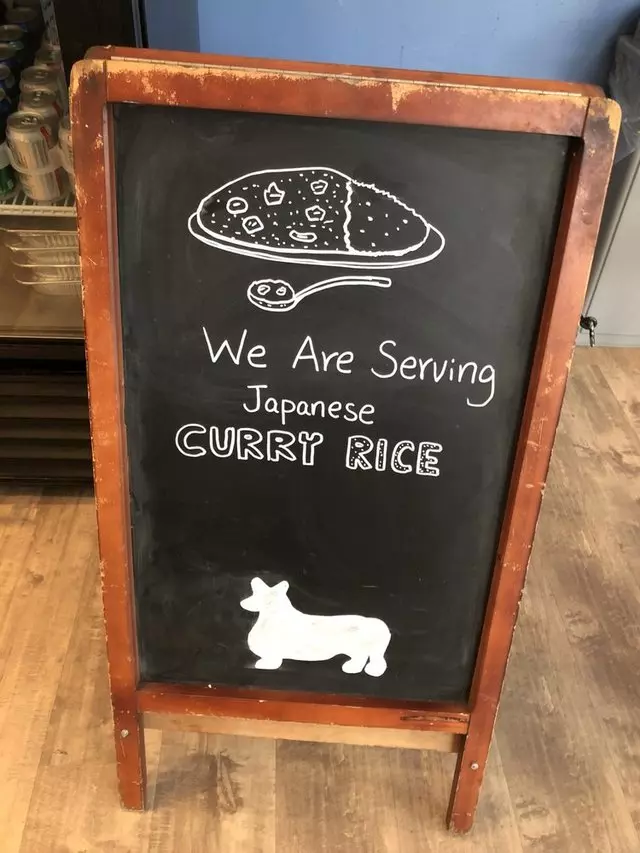 We Are Serving
Japanese
CURRY RICE